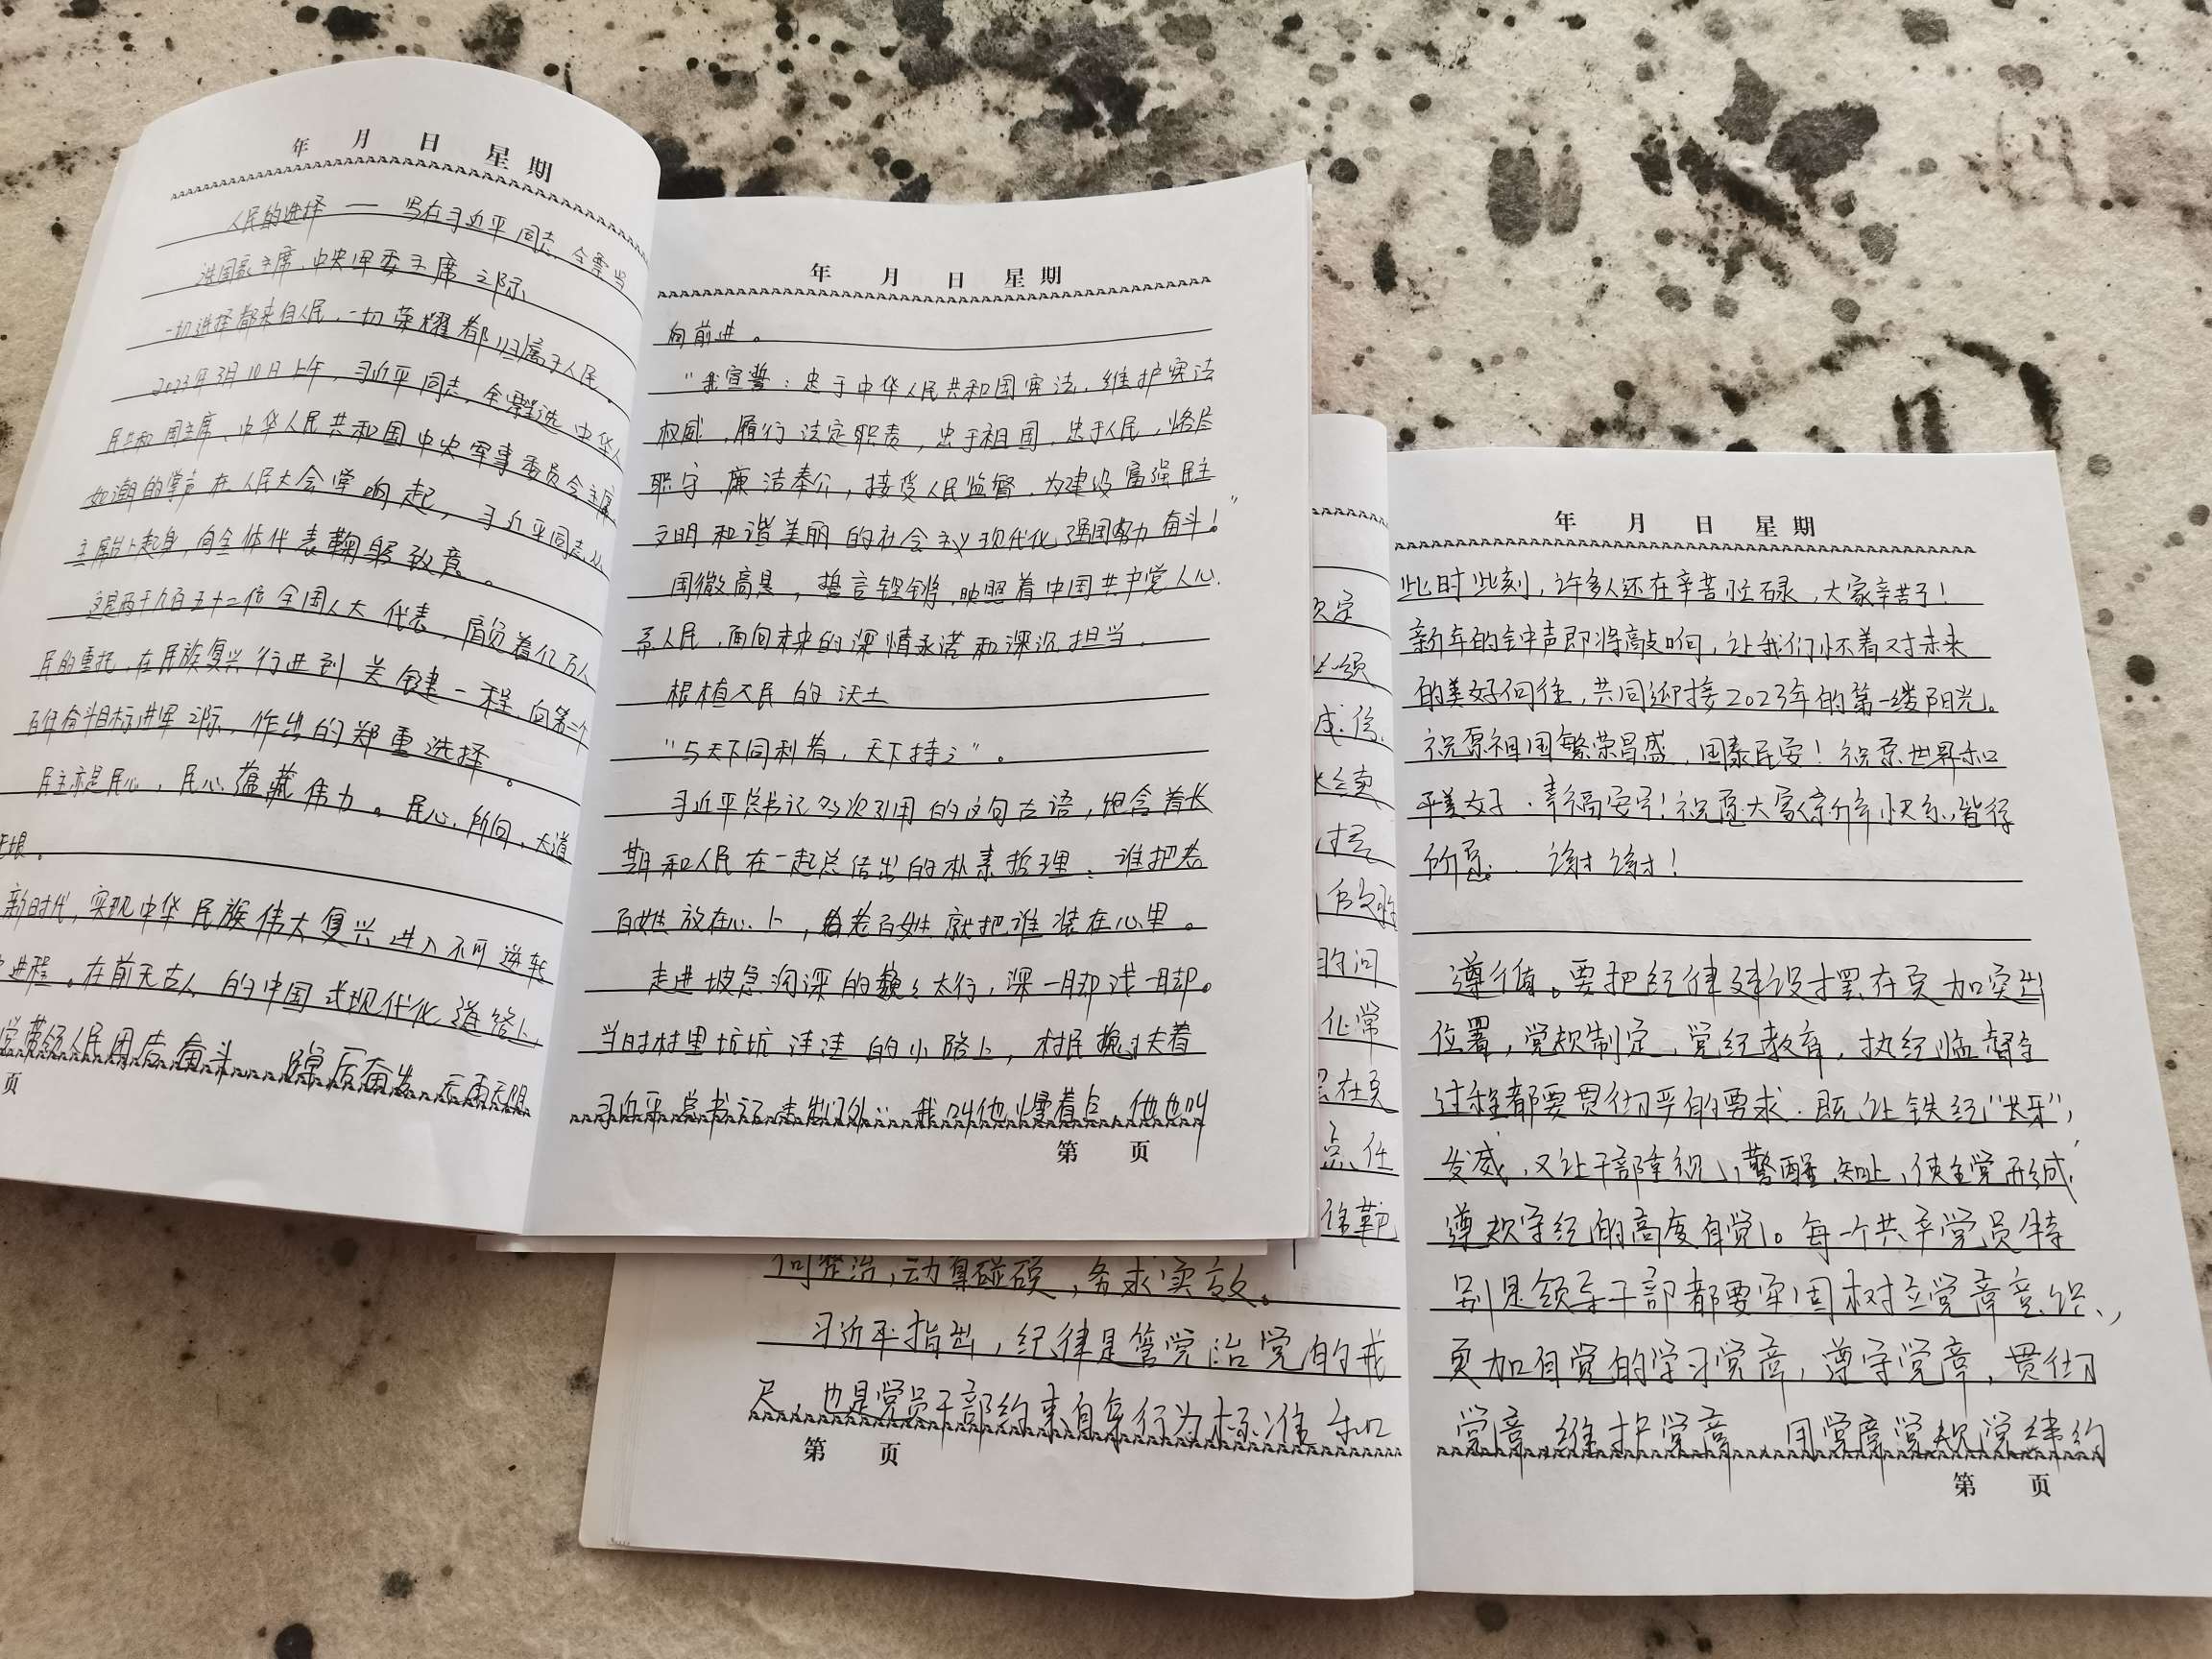 年 月 日 星期
人民的选择 —— 写在习近平同志全票当
选国家主席、中央军委主席之际
一切选择都来自人民,一切荣耀都归属于人民。
2023年3月10日上午,习近平同志全票当选中华人
民共和国主席、中华人民共和国中央军事委员会主席
如潮的掌声在人民大会堂响起,习近平同志从
主席台上起身,向全体代表鞠躬致意。
这是两千九百五十二位全国人大代表,肩负着亿万人
民的重托,在民族复兴行进到关键一程、向第二个
百年奋斗目标进军之际,作出的郑重选择。
民主亦是民心,民心蕴藏伟力。民心所向,大道
无垠。
新时代,实现中华民族伟大复兴进入不可逆转
进程。在前无古人的中国式现代化道路上,
党带领人民团结奋斗、踔厉奋发、无雨无阻
页
年 月 日 星期
向前进。
“我宣誓:忠于中华人民共和国宪法,维护宪法
权威,履行法定职责,忠于祖国、忠于人民,恪尽
职守、廉洁奉公,接受人民监督,为建设富强民主
文明和谐美丽的社会主义现代化强国努力奋斗!”
国徽高悬,誓言铿锵,映照着中国共产党人心
系人民、面向未来的深情承诺和深沉担当。
根植人民的沃土
“与天下同利者,天下持之”。
习近平总书记多次引用的这句古语,饱含着长
期和人民在一起总结出的朴素哲理:谁把老
百姓放在心上,老百姓就把谁装在心里。
走进坡急沟深的巍巍太行,深一脚浅一脚。
当时村里坑坑洼洼的小路上,村民搀扶着
习近平总书记走出门外:“我叫他慢着点,他也叫
第 页
年 月 日 星期
此时此刻,许多人还在辛苦忙碌,大家辛苦了!
新年的钟声即将敲响,让我们怀着对未来
的美好向往,共同迎接2023年的第一缕阳光。
祝愿祖国繁荣昌盛、国泰民安!祝愿世界和
平美好、幸福安宁!祝愿大家新年快乐、皆得
所愿。谢谢!
遵循。要把纪律建设摆在更加突出
位置,党规制定、党纪教育、执纪监督全
过程都要贯彻严的要求,既让铁纪“长牙”、
发威,又让干部重视、警醒、知止,使全党形成
遵规守纪的高度自觉。每一个共产党员特
别是领导干部都要牢固树立党章意识,
更加自觉的学习党章、遵守党章、贯彻
党章、维护党章,用党章党规党纪约
第 页
何整治,动真碰硬,务求实效。
习近平指出,纪律是管党治党的戒
尺,也是党员干部约束自身行为标准和
第 页